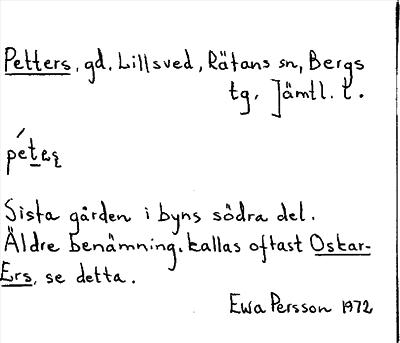 Petters, gd, Lillsved, Rätans sn, Bergs
tg, Jämtl. l.
Sista gården i byns södra del.
Äldre benämning, kallas oftast Oskar-
Ers, se detta.
Ewa Persson 1972